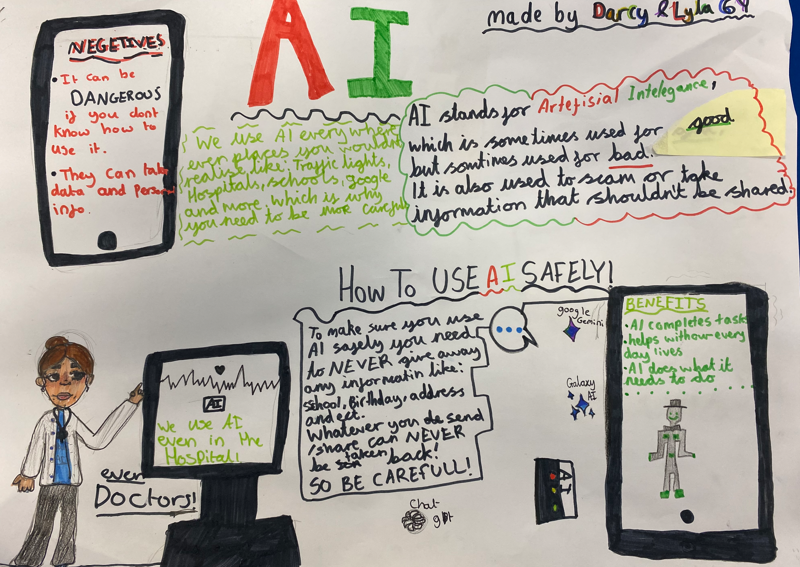 AI
made by Darcy & Lyla 6Y
NEGETIVES
• It can be
DANGEROUS
if you dont
know how to
use it.
• They can take
data and personal
info.
We use AI everywhere
even places you wouldn't
realise like: Traffic lights,
Hospitals, schools, google
and more, which is why
you need to be more careful
AI stands for Artefisial Intelegance,
which is sometimes used for good
but somtimes used for bad.
It is also used to scam or take
information that shouldn't be shared.
HOW TO USE AI SAFELY!
To make sure you use
AI safely you need
to NEVER give away
any informatin like:
School, Birthday, address
and ect.
Whatever you do send
/share can NEVER
be taken back!
SO BE CAREFULL!
google
Gemini
Galaxy
AI
Chat
gpt
AI
BENEFITS
• AI completes tasks
• helps with our every
day lives
• AI does what it
needs to do
AI
We use AI
even in the
Hospital!
even
DOCTORS!